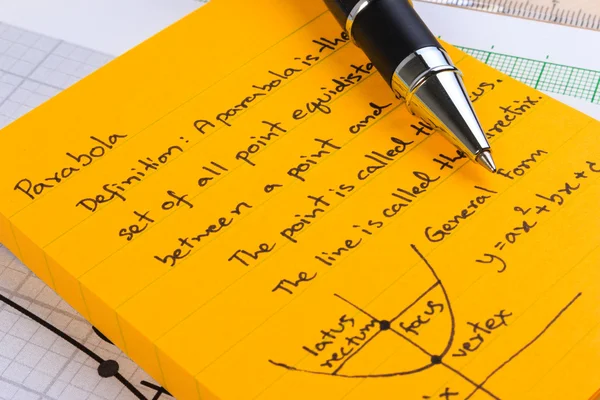 Parabola
Definition: A parabola is the
set of all point equidista
between a point and
The point is called th cus.
The line is called the rectrix.
General Form
y=ax²+bx+c
latus
rectum
focus
vertex
ix